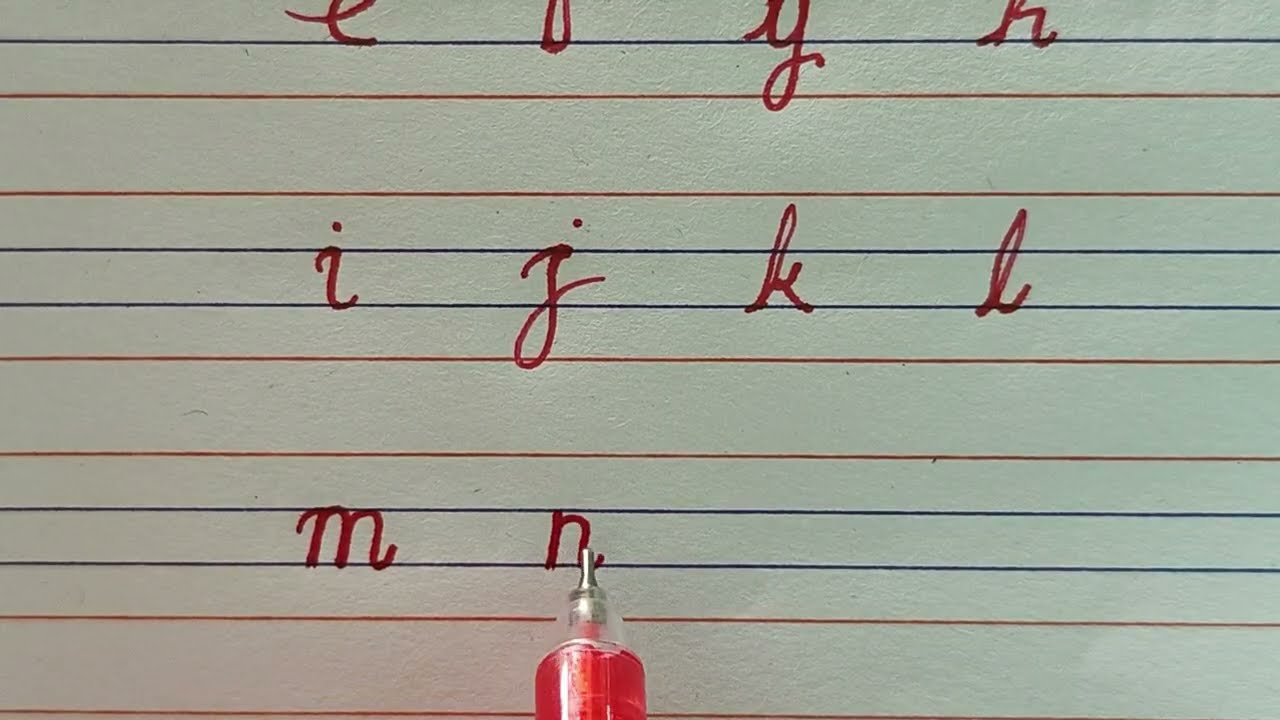 e f g h
i j k l
m n